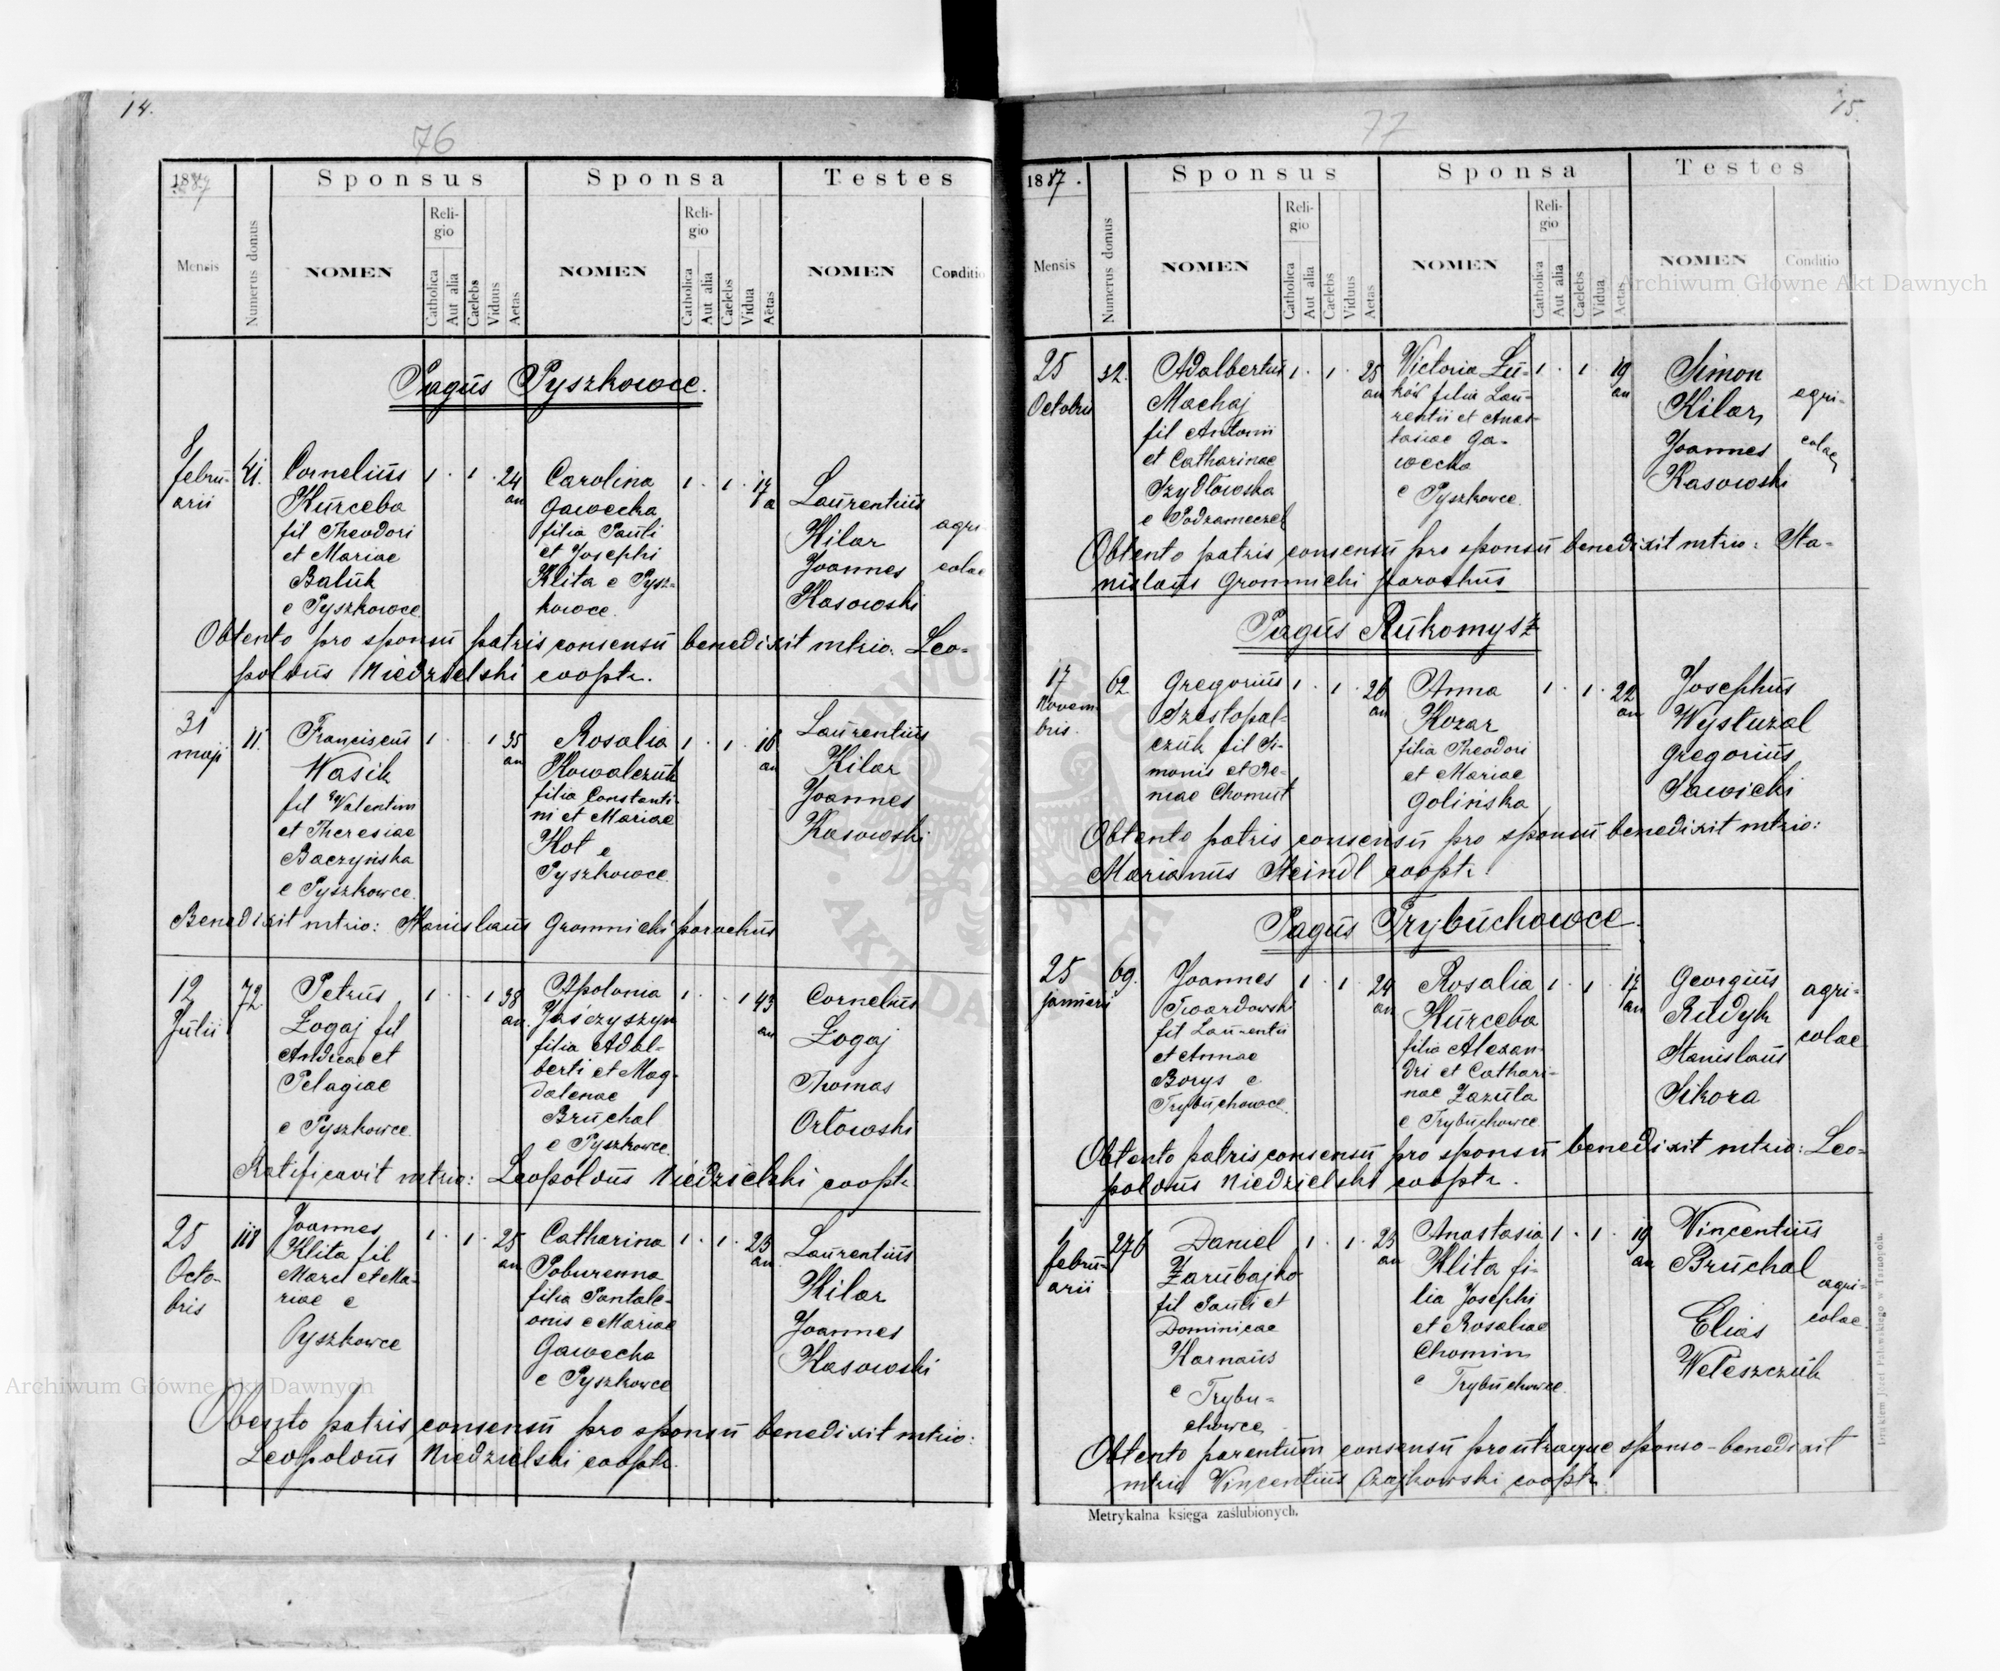 14.
76
1887
Sponsus
Sponsa
Testes
Mensis
Numerus domus
NOMEN
Religio
Catholica
Aut alia
Caelebs
Viduus
Aetas
NOMEN
Religio
Catholica
Aut alia
Caelebs
Vidua
Aetas
NOMEN
Conditio
Pagus Pyszkowce.
8
febru-
arii
41.
Cornelius
Kurceba
fil Theodori
et Mariae
Baluk
e Pyszkowce
1 . 1 . 24
an
Carolina
Gawecka
filia Pauli
et Josephi
Klita e Pysz-
kowce.
1 . 1 . 17
a
Laurentius
Kilar
Joannes
Kasowski
agri
colae
Obtento pro sponsu patris consensu benedixit mtrio: Leo-
poldus Niedzielski cooptr.
31
maji
11.
Franciscus
Wasik
fil Valentini
et Theresiae
Baczyńska
e Pyszkowce
1 . . 1 35
an
Rosalia
Kowalczuk
filia Constanti-
ni et Mariae
Kot e
Pyszkowce
1 . 1 . 18
an
Laurentius
Kilar
Joannes
Kasowski
Benedixit mtrio: Stanislaus Gromnicki parochus
12
Julii
72.
Petrus
Zogaj fil
Andreae et
Pelagiae
e Pyszkowce
1 . . 1 38
an.
Apolonia
Jasczyszyn
filia Adal-
berti et Mag-
dalenae
Bruchal
e Pyszkowce
1 . . 1 43
an
Cornelius
Zogaj
Thomas
Orłowski
Ratificavit mtrio: Leopoldus Niedzielski cooptr
25
Octo-
bris
118
Joannes
Klita fil
Marci et Ma-
riae e
Pyszkowce
1 . 1 . 25
an
Catharina
Poburenna
filia Pantale-
onis e Mariae
Gawecka
e Pyszkowce
1 . 1 . 23
an
Laurentius
Kilar
Joannes
Kasowski
Obtento patris consensu pro sponsu benedixit mtrio:
Leopoldus Niedzielski cooptr.
15.
77
1887.
Sponsus
Sponsa
Testes
Mensis
Numerus domus
NOMEN
Religio
Catholica
Aut alia
Caelebs
Viduus
Aetas
NOMEN
Religio
Catholica
Aut alia
Caelebs
Vidua
Aetas
NOMEN
Conditio
25
Octobris
32.
Adalbertus
Machaj
fil Antonii
et Catharinae
Szydłowska
e Podzameczek
1 . 1 . 25
an
Victoria Łu-
ków filia Lau-
rentii et Anas-
tasiae Ga-
wecka
e Pyszkowce.
1 . 1 . 19
an
Simon
Kilar,
Joannes
Kasowski
agri-
colae
Obtento patris consensu pro sponsu benedixit mtrio: Sta-
nislaus Gromnicki parochus
Pagus Rukomysz
17
Novem-
bris.
62.
Gregorius
Szestopal-
czuk fil Si-
monis et Re-
niae Chomut
1 . 1 . 26
an
Anna
Kozar
filia Theodori
et Mariae
Golińska
1 . 1 . 22
an
Josephus
Wystuzal
Gregorius
Sawicki
Obtento patris consensu pro sponsu benedixit mtrio:
Marianus Steindl cooptr.
Pagus Trybuchowce.
25
januari
69.
Joannes
Twardowski
fil Laurentii
et Annae
Borys e
Trybuchowce.
1 . 1 . 24
an
Rosalia
Kurceba
filia Alexan-
dri et Cathari-
nae Zazula
e Trybuchowce
1 . 1 . 17
an
Georgius
Rudyk
Stanislaus
Sikora
agri-
colae
Obtento patris consensu pro sponsu benedixit mtrio: Leo-
poldus Niedzielski cooptr.
1
febru-
arii
276
Daniel
Zarubajko
fil Pauli et
Dominicae
Karnaus
e Trybu-
chowce
1 . 1 . 23
an
Anastasia
Klita fi-
lia Josephi
et Rosaliae
Chomin
e Trybuchowce.
1 . 1 . 19
an
Vincentius
Bruchal
Elias
Weleszczuk
agri-
colae
Obtento parentum consensu pro utraque sponso-benedixit
mtrio Vincentius Czajkowski cooptr.
Metrykalna księga zaślubionych.
Drukiem Józef Pałowskiego w Tarnopolu.
Archiwum Główne Akt Dawnych
Archiwum Główne Akt Dawnych